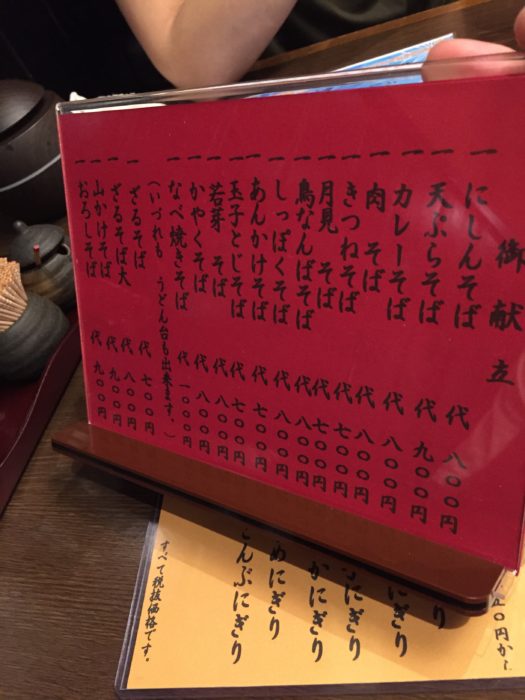 御献立
一 にしんそば 代 八〇〇円
一 天ぷらそば 代 九〇〇円
一 カレーそば 代 八〇〇円
一 肉 そば 代 八〇〇円
一 きつねそば 代 七〇〇円
一 月見 そば 代 七〇〇円
一 鳥なんばそば 代 八〇〇円
一 しっぽくそば 代 八〇〇円
一 あんかけそば 代 七〇〇円
一 玉子とじそば 代 七〇〇円
一 若芽 そば 代 八〇〇円
一 かやくそば 代 八〇〇円
一 なべ焼きそば 代 一〇〇〇円
（いづれも うどん台も出来ます。）
一 ざるそば 代 七〇〇円
一 ざるそば大 代 八〇〇円
一 山かけそば 代 九〇〇円
一 おろしそば 代 九〇〇円
〇円か
り
ぎり
にぎり
かにぎり
めにぎり
こんぶにぎり
すべて税抜価格です。